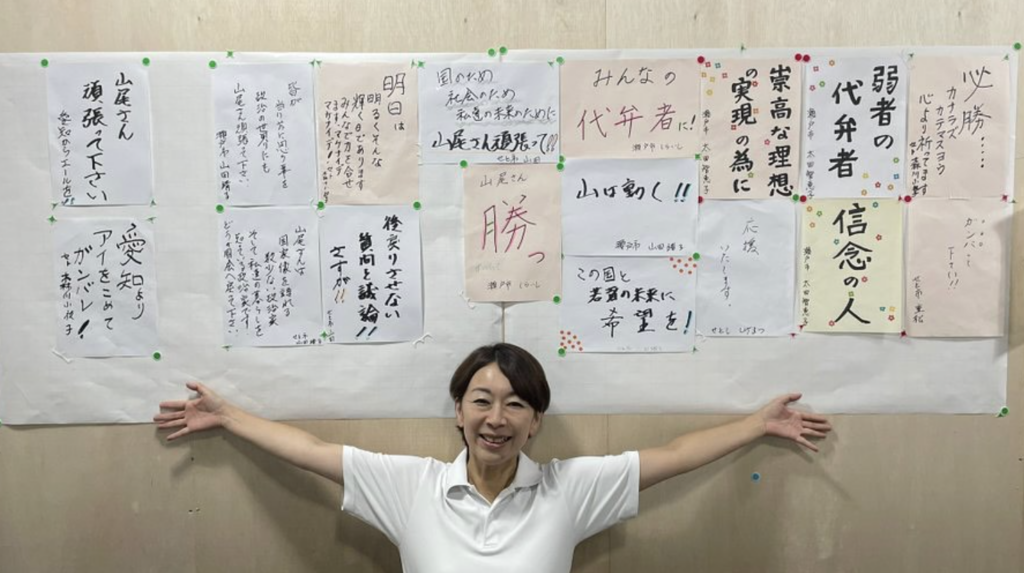 山尾さん
頑張って下さい
愛知より
アイをこめて
ガンバレ!
皆が
山尾さん頑張って下さい
瀬戸市 山田
山尾さんは
国家像を語れる
数少ない政治家
明日は
明るくそんな
輝く日であります
みんなで力を合せ
後戻りさせない
質問と議論!!
さすが!!
国のため
社会のため
私達の未来のために
山尾さん頑張って!!!
せと市 山田
山尾さん
勝つ
瀬戸市
みんなの
代弁者に!
瀬戸市
山は動く!!
瀬戸市 山田
この国と
若者の未来に
希望を!
崇高な理想
の実現の為に
瀬戸市 太田智恵子
応援
いたします。
弱者の
代弁者
瀬戸市 太田智恵子
信念の人
瀬戸市 太田智恵子
必勝....
カナラズ
カテマスヨウ
心より祈ってます
ガンバって
下さい!!
せと市